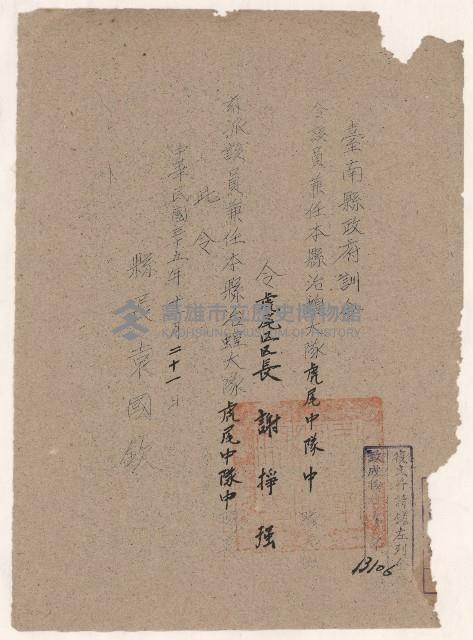 臺南縣政府訓令
令該員兼任本縣治蝗大隊虎尾中隊中
令虎尾區區長 謝掙强
茲派該員兼任本縣治蝗大隊虎尾中隊中
此令
中華民國三十五年十一月二十一日
縣長袁國欽
復文請錄左列
13106
高雄市立歷史博物館
KAOHSIUNG MUSEUM OF HISTORY